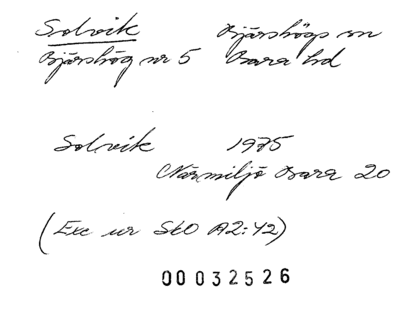 Solvik Bjärshögs sn
Bjärshög nr 5 Bara hd
Solvik 1975
Närmiljö Bara 20
(Exc ur SkO A2:42)
00032526